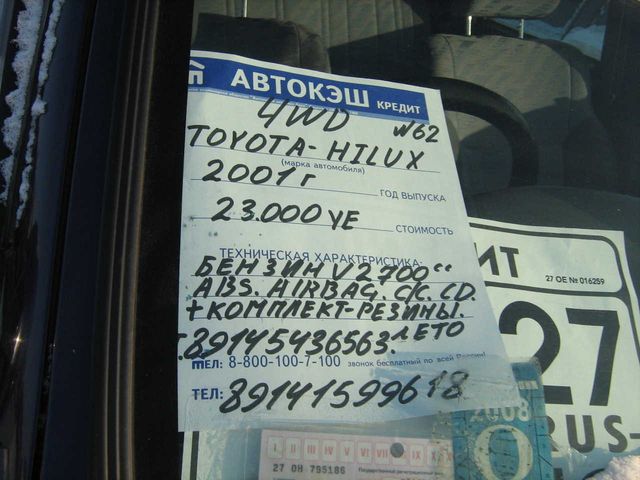 АВТОКЭШ КРЕДИТ
4WD
N62
TOYOTA-HILUX
(марка автомобиля)
2001г ГОД ВЫПУСКА
23.000 УЕ СТОИМОСТЬ
ТЕХНИЧЕСКАЯ ХАРАКТЕРИСТИКА:
БЕНЗИН V2700cc
ABS. AIRBAG. C/C. CD.
+КОМПЛЕКТ-РЕЗИНЫ.
ЛЕТО
т.89145436563.
ТЕЛ: 8-800-100-7-100 звонок бесплатный по всей России!
ТЕЛ: 89141599618
ИТ
27 ОЕ № 016259
27
RUS
2008
I II III IV V VI VII IX X
27 ОН 795186